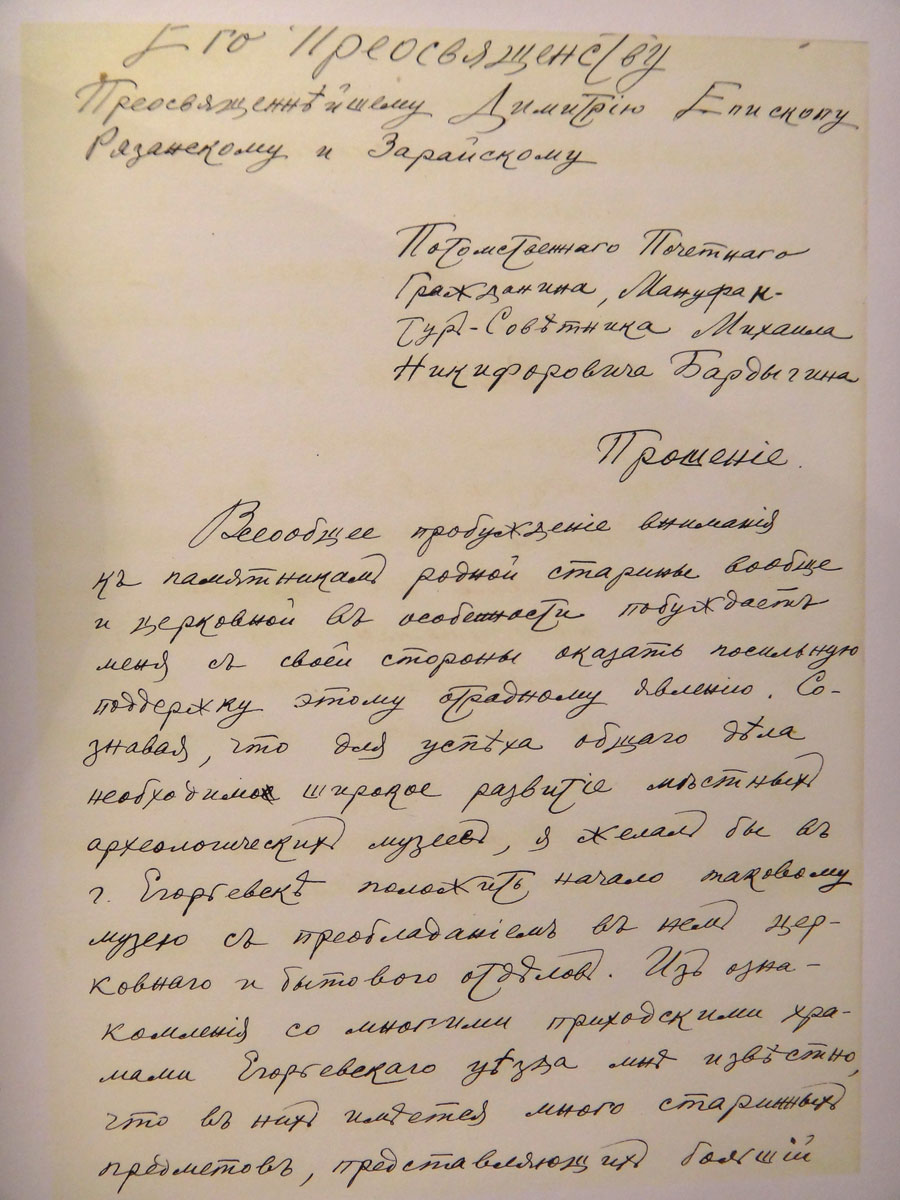 Его Преосвященству
Преосвященнѣйшему Димитрію Епископу
Рязанскому и Зарайскому
Потомственнаго Почетнаго
Гражданина, Мануфак-
тур-Совѣтника Михаила
Никифоровича Бардыгина
Прошеніе.
Всеообщее пробужденіе вниманія
къ памятникамъ родной старины вообще
и церковной въ особенности побуждаетъ
меня съ своей стороны оказать посильную
поддержку этому отрадному явленію. Со-
знавая, что для успѣха общаго дѣла
необходимо широкое развитіе мѣстныхъ
археологическихъ музеевъ, я желалъ бы въ
г. Егорьевскѣ положить начало таковому
музею съ преобладаніемъ въ немъ цер-
ковнаго и бытового отдѣловъ. Изъ озна-
комленія со многими приходскими хра-
мами Егорьевскаго уѣзда мнѣ извѣстно,
что въ нихъ имѣется много старинныхъ
предметовъ, представляющихъ большій